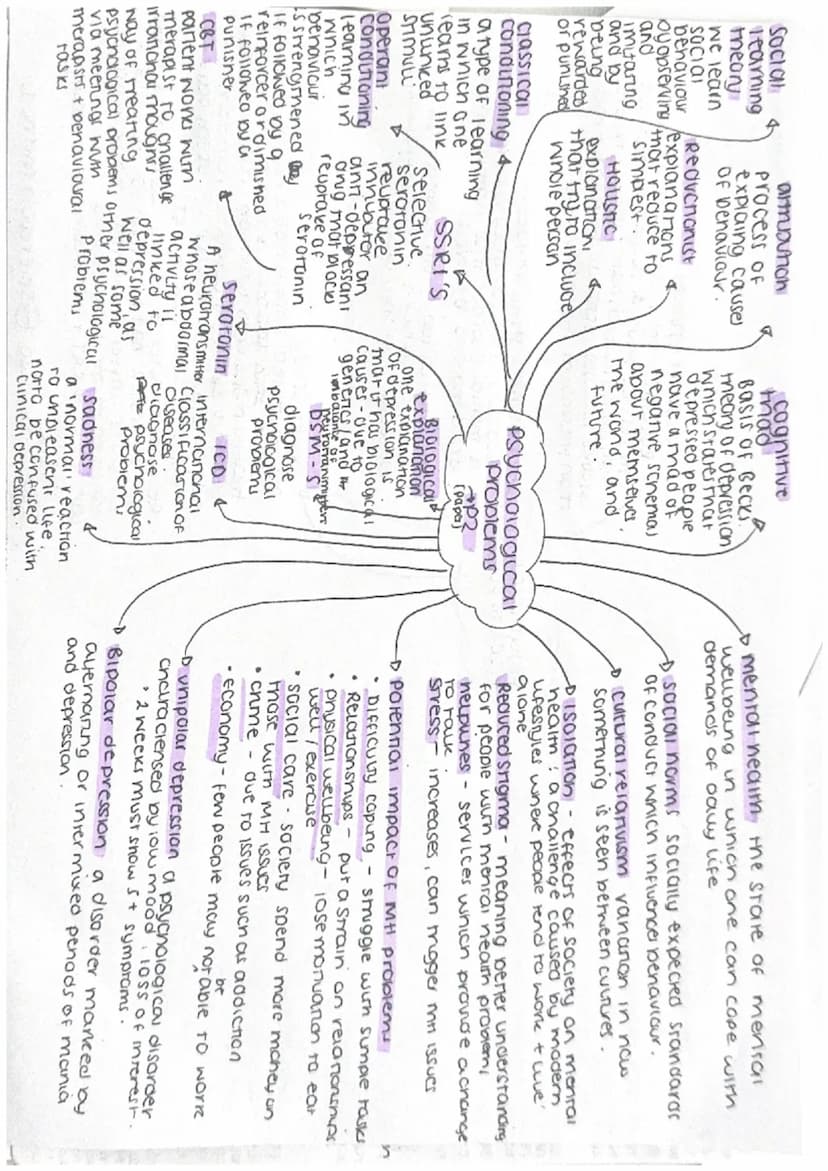 psychological
problems
→ P2
(paper)
mental health the state of mental
wellbeing in which one can cope with
demands of daily life
social norms socially expected standards
of conduct which influence behaviour.
cultural relativism variation in how
something is seen between cultures.
isolation - effects of society on mental
health: a challenge caused by modern
lifestyles where people tend to work + live
alone
Reduced stigma - meaning better understanding
for people with mental health problems
helplines - services which provide a change
to talk.
stress - increases, can trigger MH issues
Potential impact of MH problems
• Difficulty coping - struggle with simple tasks
• Relationships - put a strain on relationships
• physical wellbeing - lose motivation to eat
well / exercise
• social care - society spend more money on
those with MH issues
• crime - due to issues such as addiction
• economy - few people may not be able to work
unipolar depression a psychological disorder
characterised by low mood, loss of interest.
• 2 weeks must show 5+ symptoms.
Bipolar depression a disorder marked by
alternating or intermixed periods of mania
and depression.
sadness
a 'normal' reaction
to unpleasent life,
not to be confused with
clinical depression.
ICD
international
classification of
diseases.
diagnose
psychological
problems
DSM-5
diagnose
psychological
problems
Biological
explanation
one explanation
of depression is
that it has biological
causes - due to
genetics and / or
imbalance of
neurotransmitters
serotonin
A neurotransmitter
whose abnormal
activity is
linked to
depression, as
well as some
other psychological
problems
CBT
patient works with
therapist to challenge
irrational thoughts
way of treating
psychological problems
via meetings with
therapist + behavioural
tasks
SSRI's
selective
serotonin
reuptake
inhibitor an
anti-depressant
drug that blocks
reuptake of
serotonin
operant
conditioning
learning in
which
behaviour
is strengthened
if followed by a
reinforcer or diminished
if followed by a
punisher
classical
conditioning
a type of learning
in which one
learns to link
stimuli
Holistic
explanation
that try to include
whole person
Reductionist
explainations
that reduce to
simplest.
social
learning
theory
we learn
social
behaviour
by observing
and
imitating
and by
being
rewarded
or punished
attribution
process of
explaing causes
of behaviour.
cognitive
triad
Basis of Beck's
theory of depression
which states that
depressed people
have a triad of
negative schemas
about themselves,
the world, and
future.